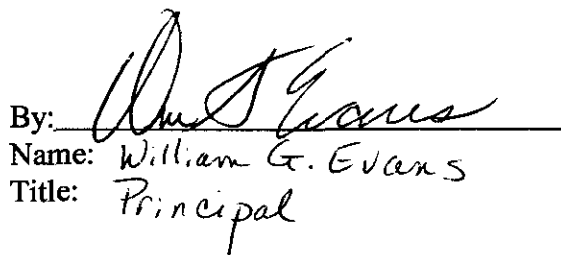 By: Wm G Evans
Name: William G. Evans
Title: Principal